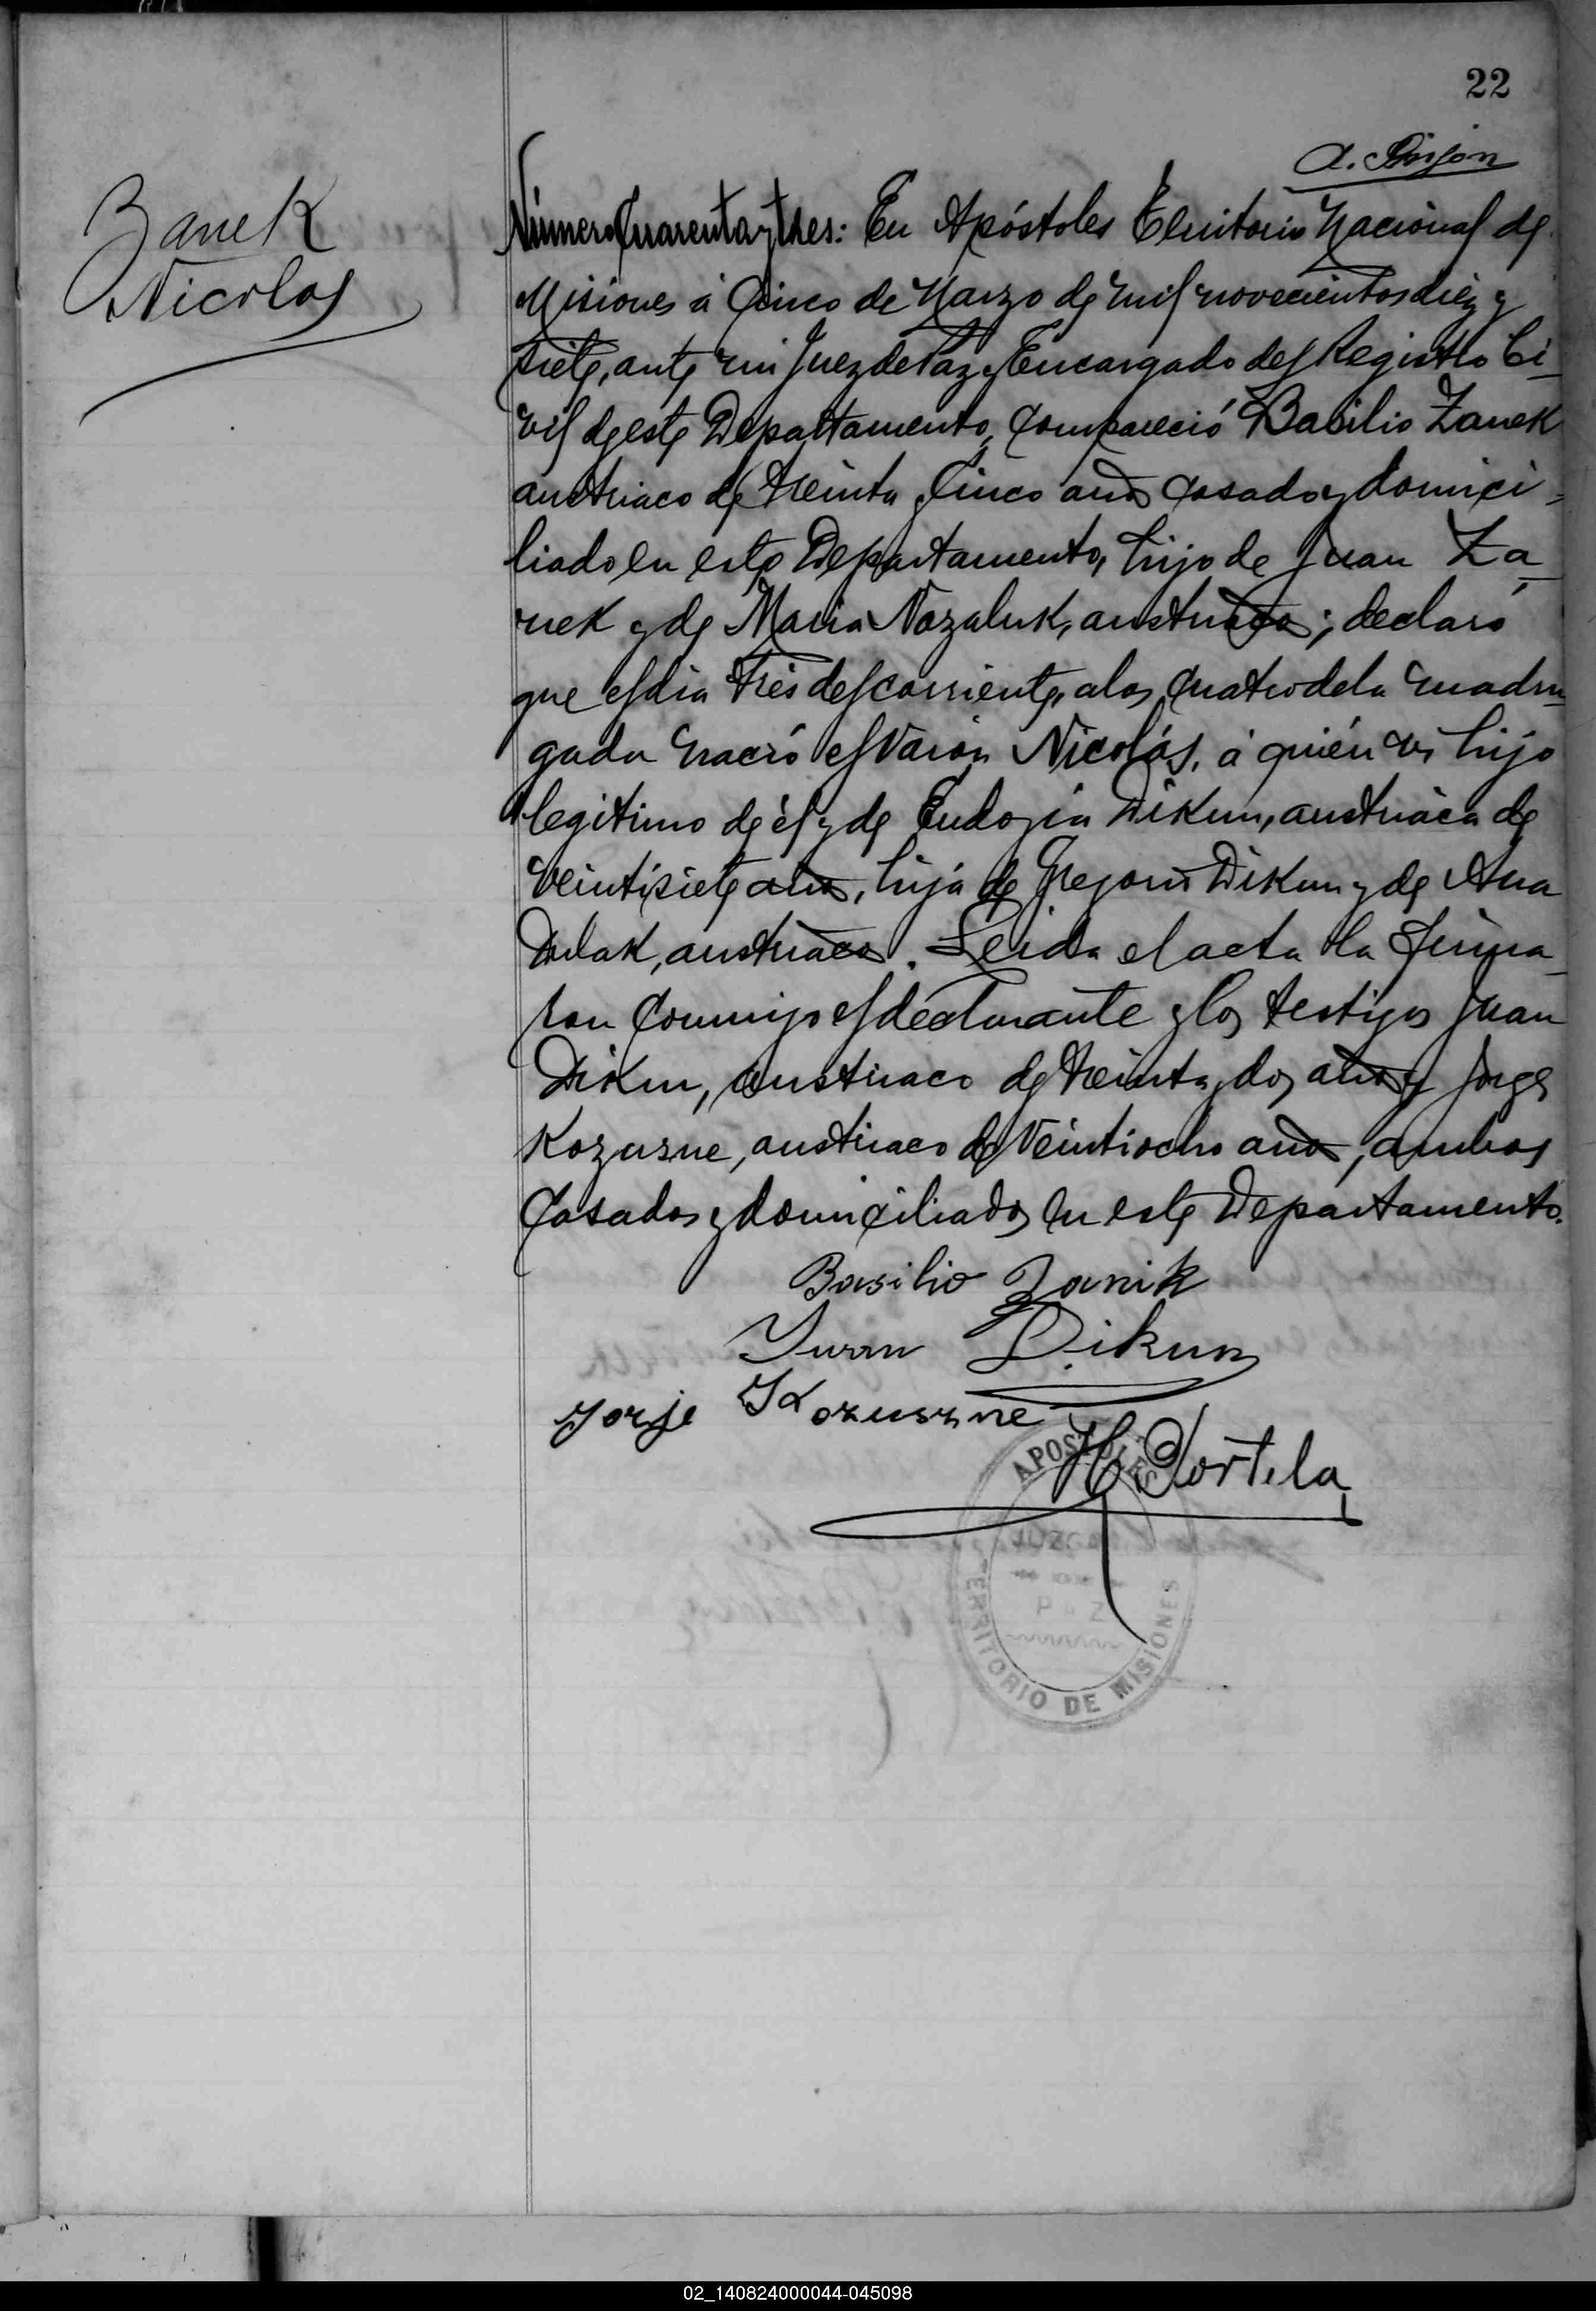 22
Zanek
Nicolas
Número Cuarenta y tres: En Apóstoles Territorio Nacional de
Misiones á Cinco de Marzo de mil novecientos diez y
siete, ante mi Juez de Paz y Encargado del Registro Ci-
vil de este Departamento, Compareció Basilio Zanek
austriaco de treinta y Cinco años casado y domici-
liado en este Departamento, hijo de Juan Za-
nek y de Maria Nazaluk, austriacos; declaró
que el dia tres del corriente, a las cuatro de la madru-
gada nació el varón Nicolás, á quién es hijo
legitimo de él y de Eudozia Dikun, austriaca de
veintisiete años, hija de Gregorio Dikun y de Ana
austriacos. Leida el acta la firma-
ron conmigo el declarante y los testigos Juan
Dikun, austriaco de treinta y dos años y Jorge
Kozusne, austriaco de veintiocho años, ambos
Casados y domiciliados en este Departamento.
Basilio Zanik
Juan Dikun
Jorje Kozuszne
H Portela
APOSTOLES
JUZGADO
PAZ
TERRITORIO DE MISIONES
02_140824000044-045098